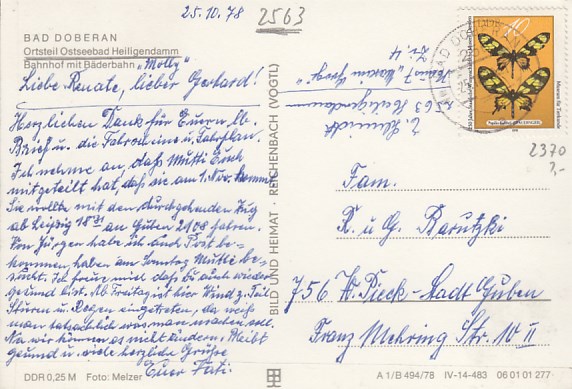 25.10.78
2563
BAD DOBERAN
Ortsteil Ostseebad Heiligendamm
Bahnhof mit Bäderbahn „Molly"
Liebe Renate, lieber Gerhard!
Herzlichen Dank für Euern lb.
Brief u. die Fahrpläne u. Fahrplan.
Ich nehme an, daß Mutti Euch
mitgeteilt hat, daß sie am 1. Nov. kommt
Sie wollte mit dem durchgehenden Zug
ab Leipzig 18 31 an Guben 21 08 fahren.
Von Jürgen habe ich auch Post be-
kommen, haben am Sonntag Mutti be-
sucht. Ich freue mich, daß Du auch wieder
gesund bist. Ab Freitag ist hier Wind z. Teil
Sturm u. Regen eingetreten, da weiß
man tatsächlich was man machen soll.
Na wir können es nicht ändern. Bleibt
gesund u. viele herzliche Grüße
Euer Vati.
DDR 0,25 M Foto: Melzer
BILD UND HEIMAT · REICHENBACH (VOGTL)
Z. Schmidt
Haus 7
Zi. 4
Heiligendamm
BAD DOBERAN
10
2370
2,-
Fam.
K. u G.
756 W. Pieck-Stadt Guben
Franz Mehring Str. 10 II
A 1/B 494/78 IV-14-483 06 01 01 277